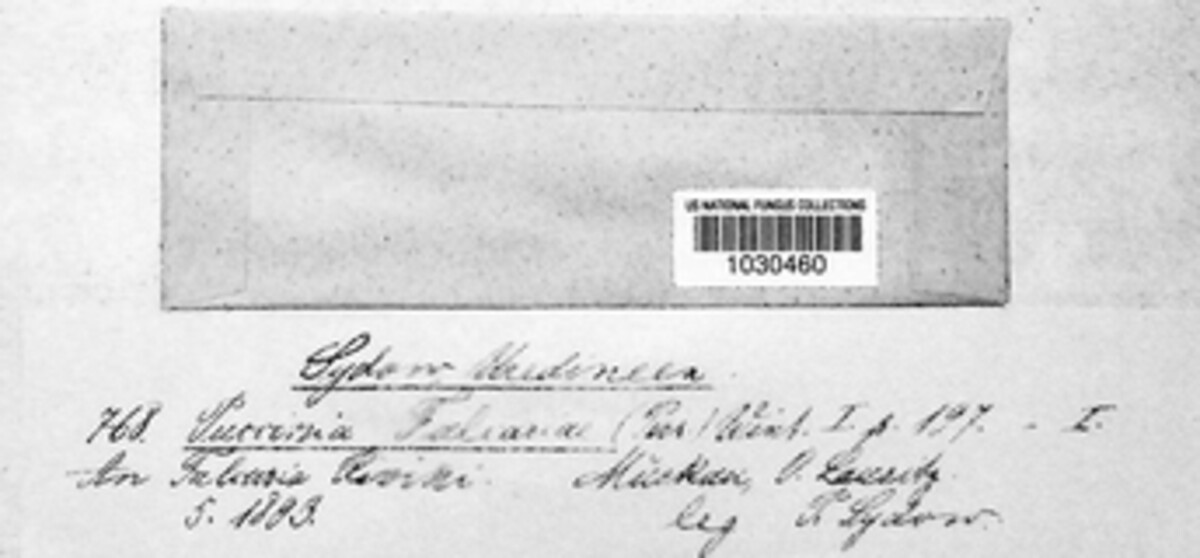 US NATIONAL FUNGUS COLLECTIONS
1030460
Sydow, Uredineen
768. Puccinia Falcariae (Pers.) Wint. I p. 197. - I.
An Falcaria Rivini. Muskau, O. Lausitz.
5. 1893. leg P. Sydow.